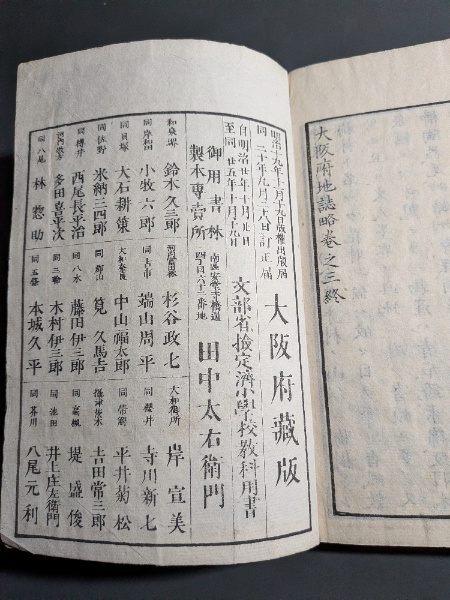 大阪府地誌略卷之三終
明治十九年十一月十九日版權出版届
同二十年九月二十八日訂正届
大阪府藏版
自明治廿年十月廿日
至同廿五年十月十九日
文部省檢定濟小學校敎科用書
御用書林
製本專賣所
南區安堂寺橋通
四丁目六十二番地
田中太右衛門
和泉堺 鈴木久三郎
同岸和田 小牧六郎
同貝塚 大石耕策
同佐野 米納三四郎
同樽井 西尾長平治
河内枚方 多田喜平次
同八尾 林惣助
河内富田林 杉谷政七
同古市 端山周平
大和奈良 中山福太郎
同郡山 筧久馬吉
同八木 藤田伊三郎
同三輪 木村伊三郎
同五條 本城久平
大和御所 岸宣美
同櫻井 寺川新七
同帶解 平井菊松
攝津茨木 吉田常三郎
同富楓 堤盛俊
同池田 井上庄左衛門
同芥川 八尾元利